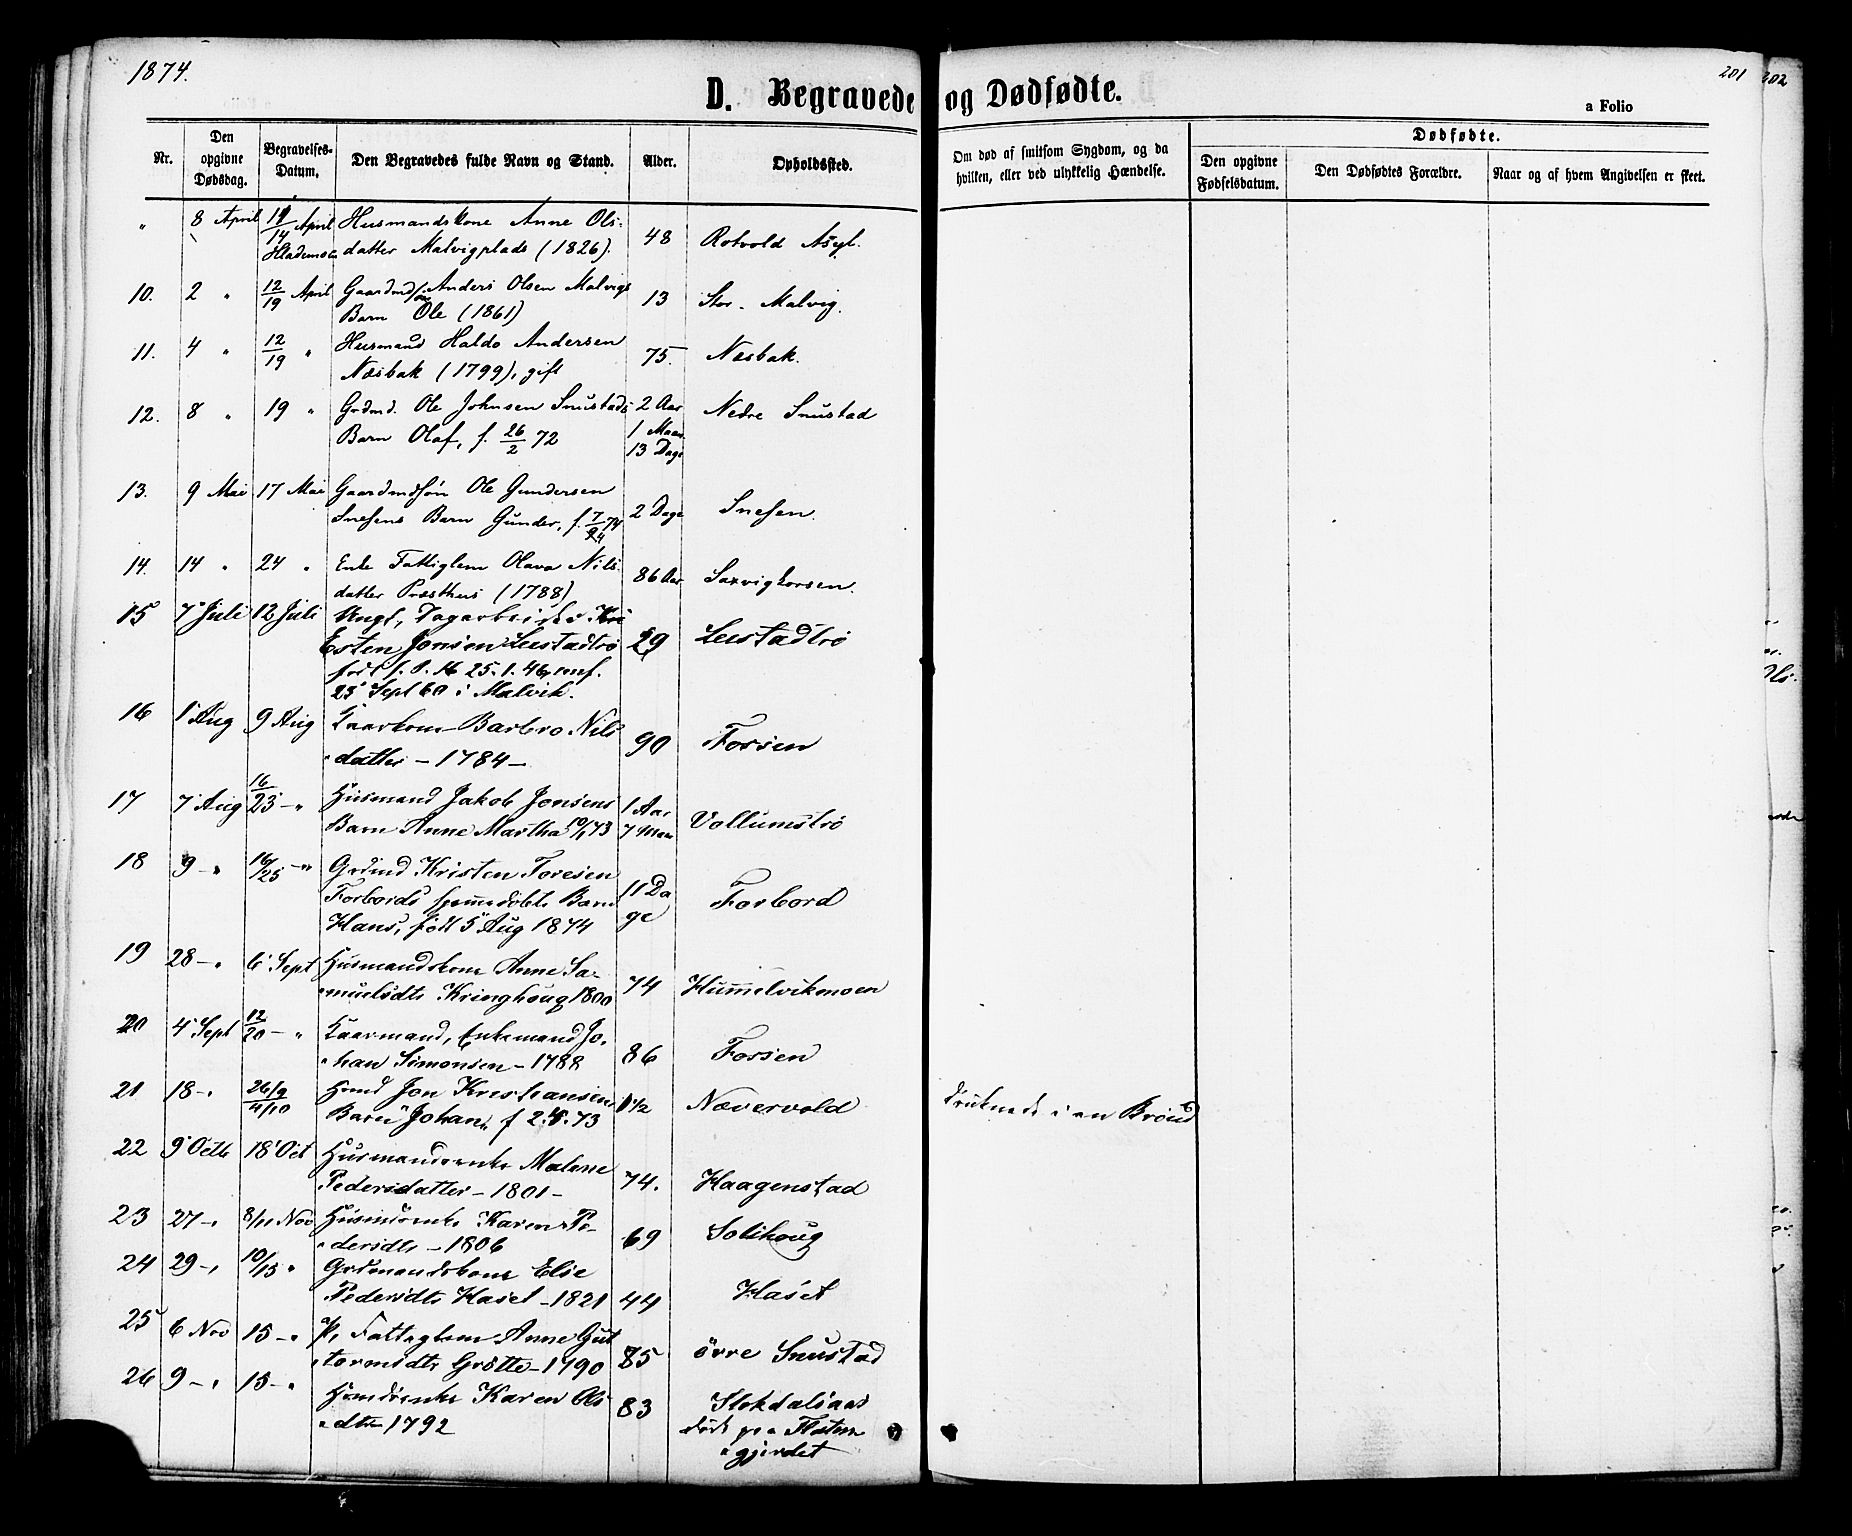 1874.
201
202
D. Begravede og Dødfødte.
a Folio
Nr.
Den opgivne Dødsdag.
Begravelses-Datum.
Den Begravedes fulde Navn og Stand.
Alder.
Opholdssted.
Om død af smitsom Sygdom, og da hvilken, eller ved ulykkelig Hændelse.
Dødfødte.
Den opgivne Fødselsdatum.
Den Dødfødtes Forældre.
Naar og af hvem Angivelsen er skeet.
" 8 April 11/14 April Husmandskone Anne Ols- 48 Rotvold Asyl.
datter Malvigplads (1826).
10. 2 " 12/19 April Gaardmd Anders Olsen Malvigs 13 Stor-Malvig.
Barn Ole (1861)
11. 4 " 12/19 " Husmand Haldo Andersen 75. Næsbak.
Næsbak (1799), gift
12. 8 " 19 " Grdmd. Ole Johnsen Snustads 2 Aar Nedre Snustad
Barn Olaf, f. 26/2 72 1 Maan. 13 Dage
13. 9 Mai 17 Mai Gaardmdsøn Ole Gundersen 2 Dage Snesen.
Snesens Barn Gunder, f. 7/5 74
14. 14 " 24 " Enke Fattiglem Olava Nils- 86 Aar Saxvigkorsen.
datter Præsthus (1788)
15 7 Juli 12 Juli Ungk, Dagarbeider 29 Leistadtrø
Esten Jonsen Leistadtrø
født 25.1.46, conf.
23 Sept 60 i Malvik.
16 1 Aug 9 Aug Kaarkone Barbro Nils 90 Forsen
datter – 1784 –
17 7 Aug 16/23 – " Husmand Jakob Jonsens 1 Aar Vollumstrø
Barn Anne Martha 10/1 73 7 Maan
18 9 – " 16/25 – " Grdmd Kristen Toresen 11 Da Forbord
Forbords hjemmedøbte Barn ge
Hans, født 5 Aug 1874
19 28 – " 6 Sept Husmandskone Anne Sa- 74 Hummelvikmoen
muelsdtr Kringhoug 1800
20 4 Sept 12/20 – " Kaarmand, Enkemand Jo- 86 Forsen
han Simonsen – 1788
21 18 – " 26/9 4/10 Hmd Jon Kristiansens 1½ Nævervold Druknede i en Brønd
Barn Johan, f 2.4.73
22 9 Octb 18 Oct Husmandsenke Malene 74. Haagenstad
Pedersdatter – 1801 –
23 27 – " 8/11 Nov Husmdsenke Karen Pe- 69 Solihoug
dersdtr – 1806
24 29 – " 10/15 " Grdmandskone Else
Pedersdtr Haset – 1821 44 Haset
25 6 Nov 15 – " Fattiglem Anne Gut 85 övre Snustad
tormsdtr Grøtte – 1790
26 9 – " 15 – " Hsmdsenke Karen Ols 83 Stokdalsaas
dtr 1792 døde paa Flatem
gjerdet